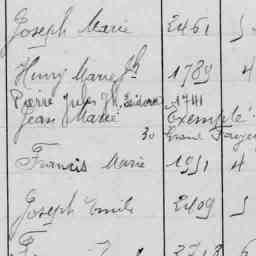 Joseph Marie 2461 5
Henry Marie Jh 1789 4
Pierre Jules Fr. Isidore 1741
Jean Marie Exempté
30
Francis Marie 1951 4
Joseph Emile 2409 5